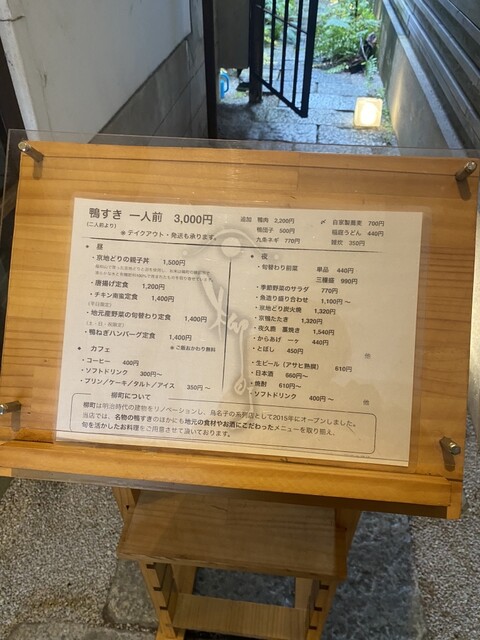 鴨すき 一人前 3,000円
(二人前より)
※ テイクアウト・発送も承ります。
追加 鴨肉 2,200円
鴨団子 500円
九条ネギ 770円
〆 自家製蕎麦 700円
稲庭うどん 440円
雑炊 350円
● 昼
・京地どりの親子丼 1,500円
・唐揚げ定食 1,200円
・チキン南蛮定食 1,400円
(平日限定)
・地元産野菜の旬替わり定食 1,400円
(土・日・祝限定)
・鴨ねぎハンバーグ定食 1,400円
※ ご飯おかわり無料
● カフェ
・コーヒー 400円
・ソフトドリンク 300円〜
・プリン/ケーキ/タルト/アイス 350円〜
● 夜
・旬替わり前菜 単品 440円
三種盛 990円
・季節野菜のサラダ 770円
・魚造り盛り合わせ 1,100円〜
・京地どり炭火焼 1,320円
・京鴨たたき 1,320円
・夜久鹿 藁焼き 1,540円
・からあげ 一ヶ 440円
・とばし 450円
他
・生ビール (アサヒ熟撰) 610円
・日本酒 660円〜
・焼酎 610円〜
・ソフトドリンク 400円〜
他
柳町について
柳町は明治時代の建物をリノベーションし、鳥名子の系列店として2015年にオープンしました。
当店では、名物の鴨すきのほかにも地元の食材やお酒にこだわったメニューを取り揃え、
旬を活かしたお料理をご用意させて頂いております。